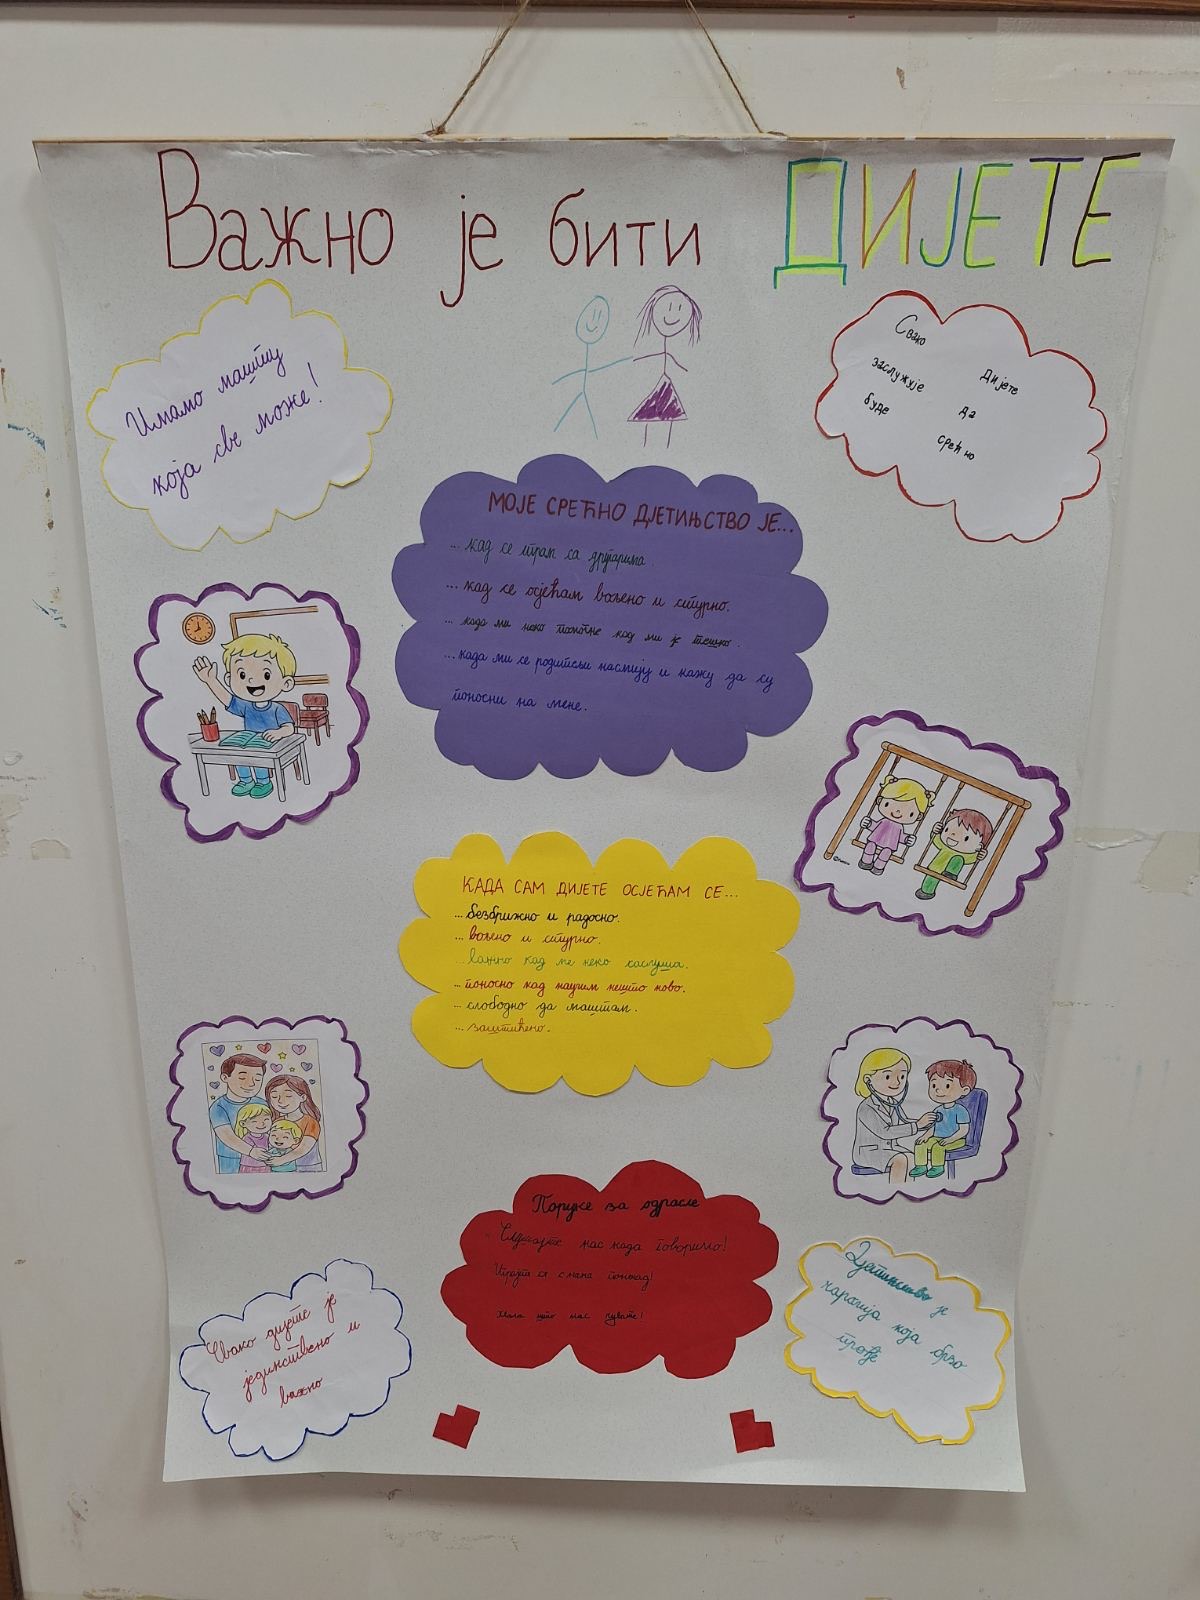 Важно је бити ДИЈЕТЕ
Имамо машту
која све може!
Свако
дијете
заслужује
да
буде
срећно
МОЈЕ СРЕЋНО ДЈЕТИЊСТВО ЈЕ...
... кад се играм са друговима.
... кад се осјећам вољено и сигурно.
... када ми неко помогне кад ми је тешко.
... када ми се родитељи насмију и кажу да су
поносни на мене.
КАДА САМ ДИЈЕТЕ ОСЈЕЋАМ СЕ...
... безбрижно и радосно.
... вољено и сигурно.
... важно кад ме неко саслуша.
... поносно кад научим нешто ново.
... слободно да маштам.
... заштићено.
Поруке за одрасле
Слушајте нас када говоримо!
Играјте се с нама понекад!
нас чувате!
Свако дијете је
јединствено и
важно
Дјетињство је
чаролија која брзо
прође